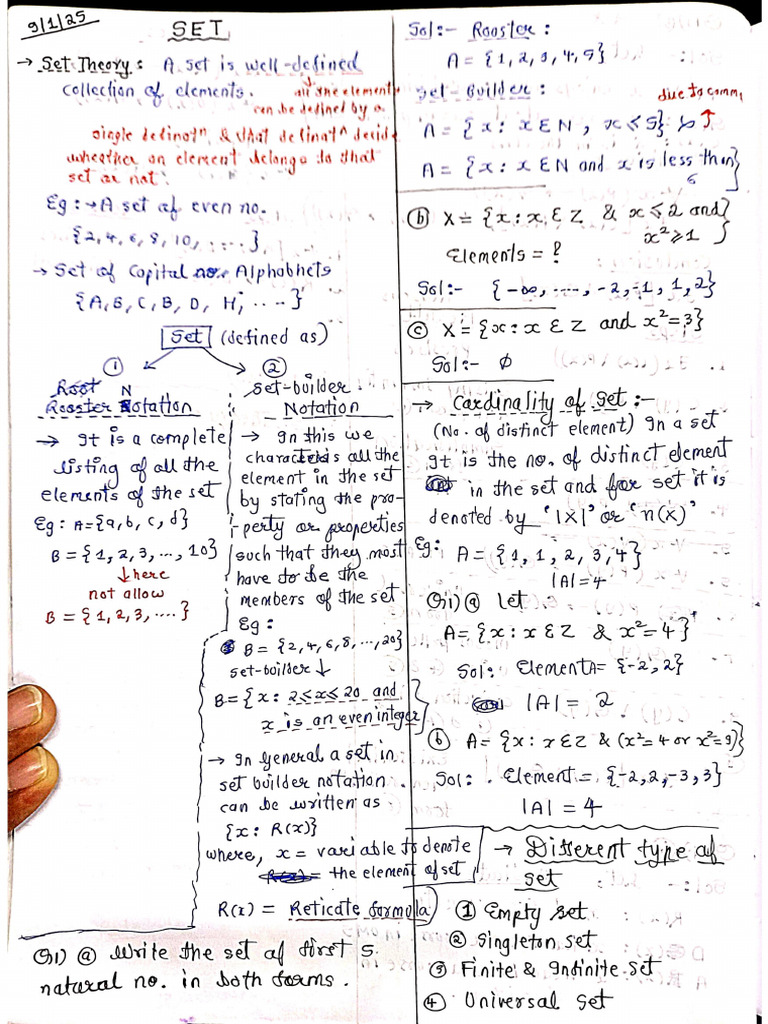 9/1/25
SET
→ Set Theory : A set is well-defined
collection of elements.
all the element
can be defined by a
single definatn, & that definatn decide
wheather an element belongs to that
set or not.
Eg :→ A set of even no.
{2, 4, 6, 8, 10, ....}
→ Set of Capital Alphabhets
{A, B, C, B, D, H, ....}
Set (defined as)
①
Rooster Notation
→ It is a complete
listing of all the
elements of the set
Eg : A = {a, b, c, d}
B = {1, 2, 3, ..., 10}
↓ here
not allow
B = {1, 2, 3, ....}
②
set-builder
Notation
→ In this we
all the
element in the set
by stating the pro-
perty or properties
such that they most
have to be the
members of the set
Eg :
B = {2, 4, 6, 8, ..., 20}
set-builder ↓
B = {x : 2 ≤ x ≤ 20 and
x is an even integer}
→ In general a set in
set builder notation
can be written as
{x : R(x)}
where, x = variable to denote
the element of set
R(x) = Reticate formula
Q.1) ⓐ Write the set of first 5
natural no. in both forms.
Sol :- Rooster :
A = {1, 2, 3, 4, 5}
Set-Builder :
due to comm,
A = {x : x ∈ N , x ≤ 5}
A = {x : x ∈ N and x is less than
6}
ⓑ X = {x : x ∈ Z & x ≤ 2 and
x² ≥ 1}
Elements = ?
Sol :- {-∞, ...., -2, -1, 1, 2}
ⓒ X = {x : x ∈ Z and x² = 3}
Sol :- ϕ
→ Cardinality of Set :-
(No. of distinct element) In a set
It is the no. of distinct element
in the set and for set it is
denoted by '|X|' or 'n(X)'
Eg : A = {1, 1, 2, 3, 4}
|A| = 4
Q.1) ⓐ Let
A = {x : x ∈ Z & x² = 4}
Sol : Element A = {-2, 2}
|A| = 2
ⓑ A = {x : x ∈ Z & (x² = 4 or x² = 9)}
Sol : Element = {-2, 2, -3, 3}
|A| = 4
→ Different type of
set
① Empty set
② Singleton set
③ Finite & Infinite set
④ Universal set